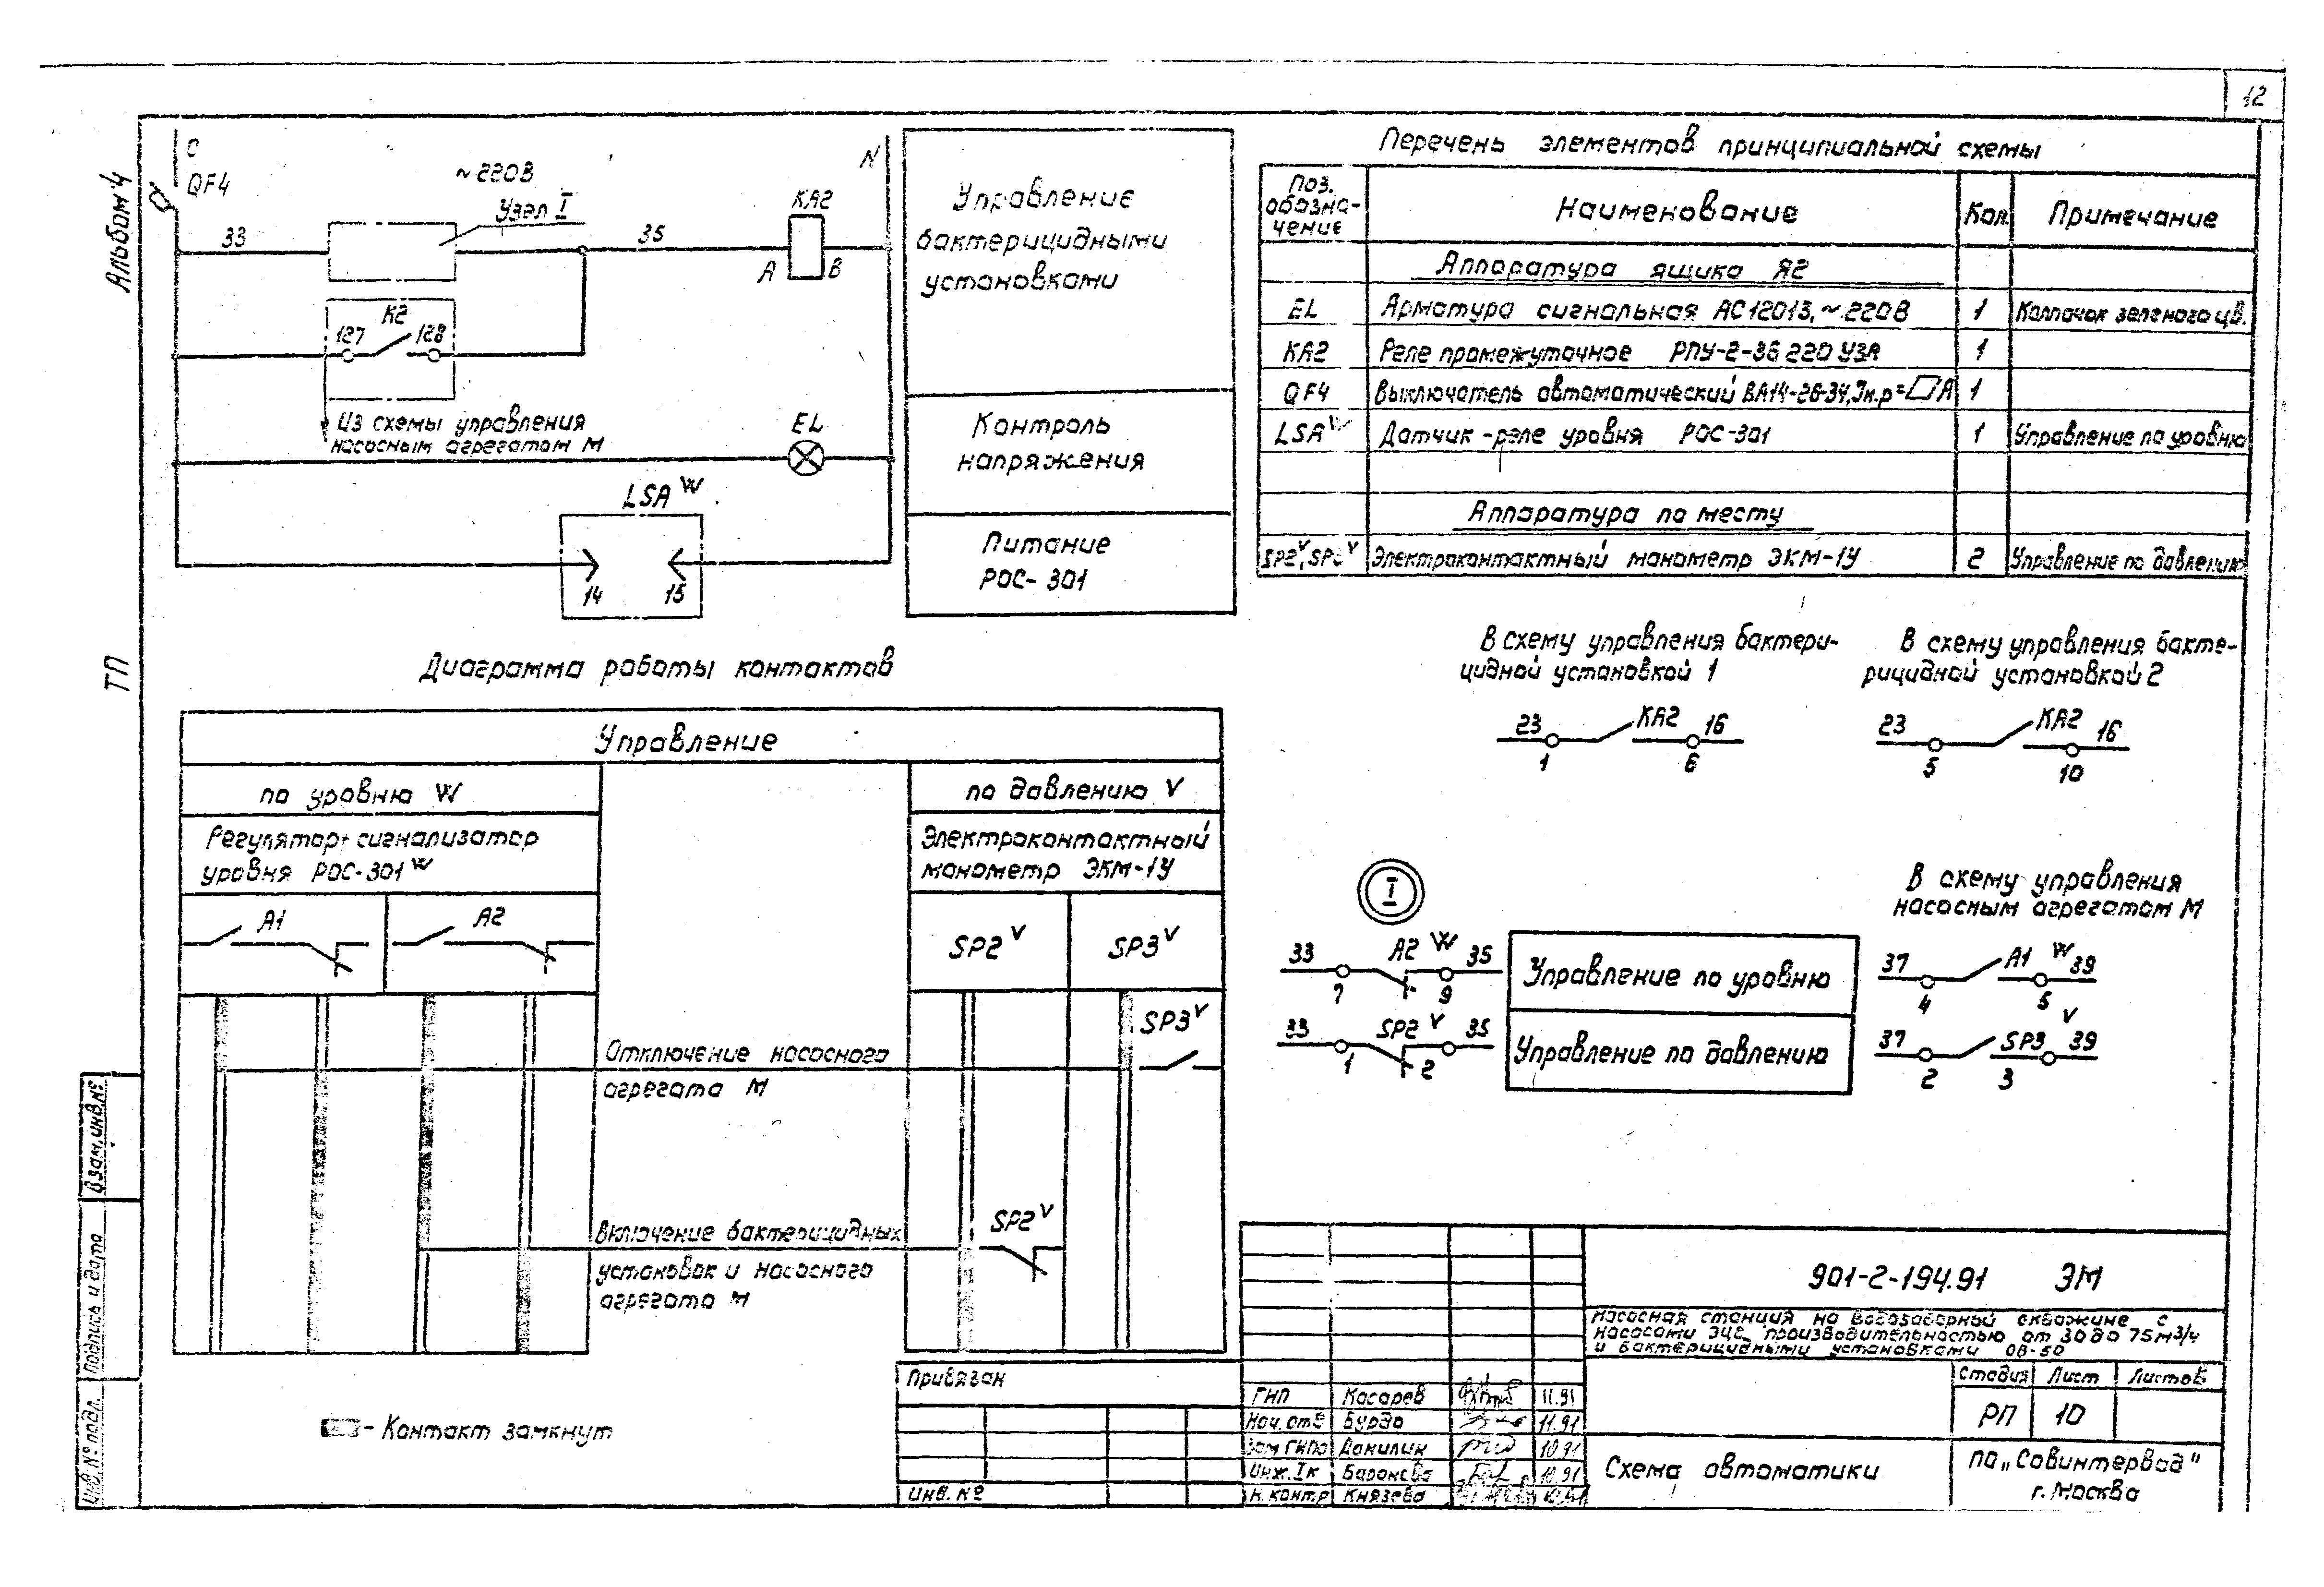 12
Альбом 4
ТП
С
QF4
~220В
N
Узел I
33
35
КА2
А
В
К2
127
128
Из схемы управления
насосным агрегатом М
EL
LSA W
14
15
Управление
бактерицидными
установками
Контроль
напряжения
Питание
РОС-301
Перечень элементов принципиальной схемы
Поз. обозна-чение
Наименование
Кол.
Примечание
Аппаратура ящика Я2
EL Арматура сигнальная АС12013, ~220В 1 Колпачок зеленого цв.
КА2 Реле промежуточное РПУ-2-36 220 У3А 1
QF4 Выключатель автоматический ВА14-26-34, Iн.р=▱А 1
LSA W Датчик-реле уровня РОС-301 1 Управление по уровню
Аппаратура по месту
SP2 V, SP3 V Электроконтактный манометр ЭКМ-1У 2 Управление по давлению
В схему управления бактери-
цидной установкой 1
23 КА2 16
1 6
В схему управления бакте-
рицидной установкой 2
23 КА2 16
5 10
Диаграмма работы контактов
Управление
по уровню W
по давлению V
Регулятор-сигнализатор
уровня РОС-301 W
Электроконтактный
манометр ЭКМ-1У
А1
А2
SP2 V
SP3 V
SP3 V
Отключение насосного
агрегата М
SP2 V
Включение бактерицидных
установок и насосного
агрегата М
- Контакт замкнут
I
33 А2 W 35
7 9
Управление по уровню
33 SP2 V 35
1 2
Управление по давлению
В схему управления
насосным агрегатом М
37 А1 W 39
4 5
37 SP3 V 39
2 3
Взам. инв. №
Подпись и дата
Инв. № подл.
Привязан
Инв. №
901-2-194.91 ЭМ
Насосная станция на водозаборной скважине с
насосами ЭЦВ производительностью от 30 до 75 м3/ч
и бактерицидными установками ОВ-50
Стадия Лист Листов
РП 10
ГИП Косарев 11.91
Нач. отд Бурдо 11.91
Зам ГИПа Данилин 10.91
Инж. Iк Баронова 10.91
Н. контр Князева 10.91
Схема автоматики
ПО „Совинтервод"
г. Москва